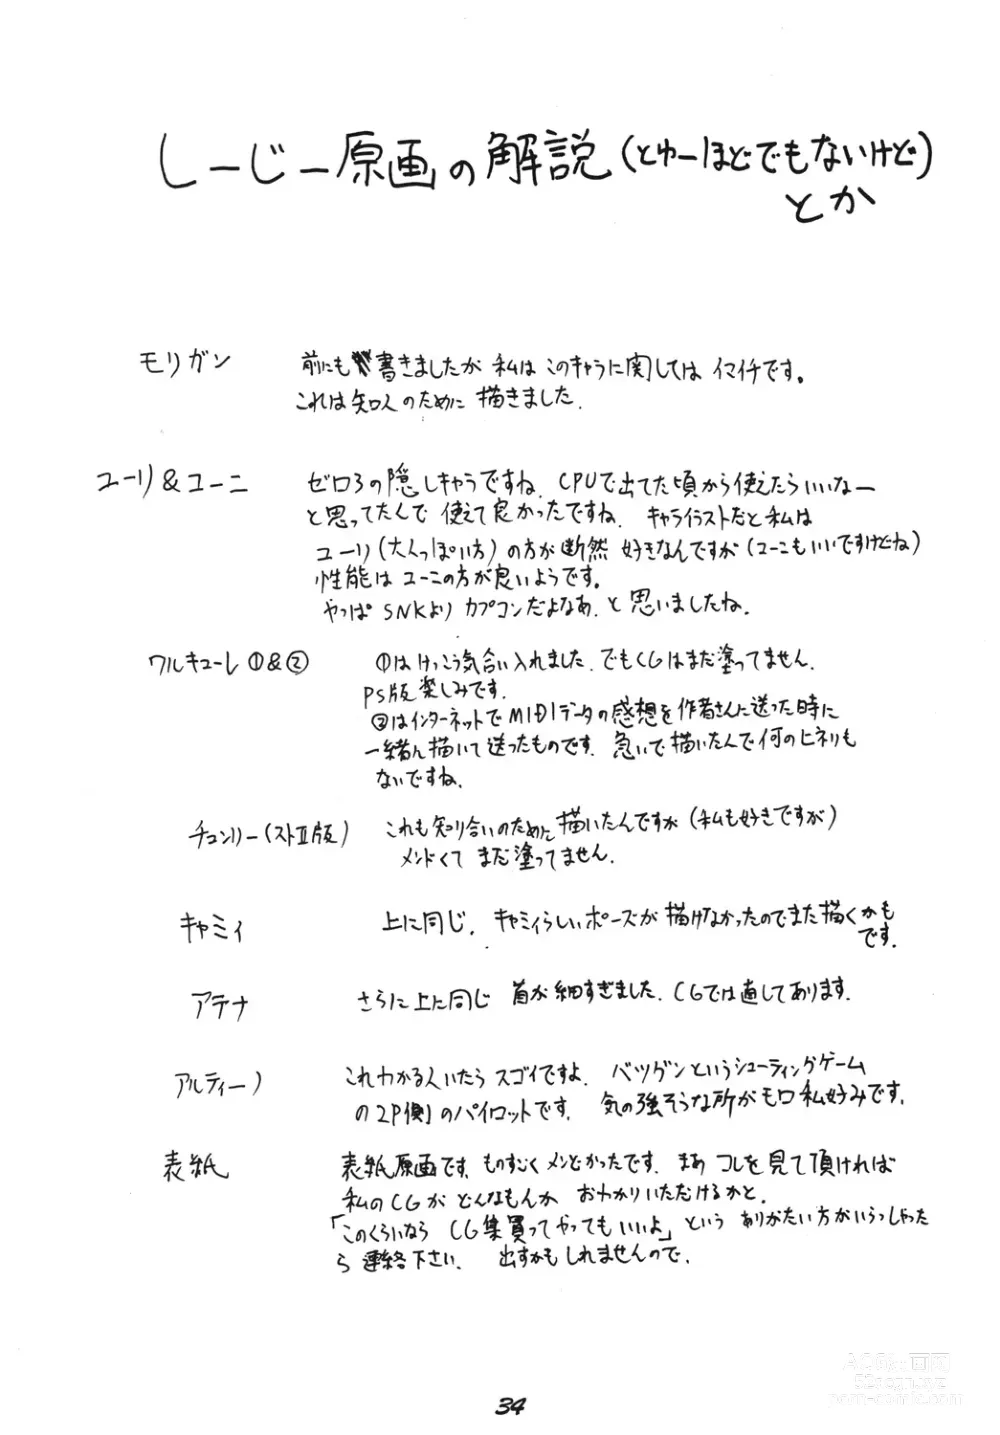 しーじー原画の解説(とゆーほどでもないけど)
とか
モリガン
前にも書きましたが 私は このキャラに関しては イマイチです。
これは知人のために 描きました.
ユーリ&ユーニ
ゼロ3の隠しキャラですね. CPUで出てた頃から使えたらいいなー
と思ってたんで 使えて良かったですね. キャライラストだと私は
ユーリ(大人っぽい方)の方が断然 好きなんですが(ユーニもいいですけどね)
性能は ユーニの方が良いようです。
やっぱ SNKより カプコンだよなあ. と 思いましたね.
ワルキューレ①&②
①は けっこう気合い入れました. でもCGはまだ塗ってません.
PS版楽しみです.
②はインターネットでMIDIデータの感想を作者さんに送った時に
一緒に描いて送ったものです. 急いで描いたんで何のヒネリも
ないですね.
チュンリー(ストII版)
これも知り合いのために描いたんですが(私も好きですが)
メンドくて まだ塗ってません.
キャミィ
上に同じ. キャミィらしいポーズが描けなかったのでまた描くかも
です.
アテナ
さらに上に同じ 首が細すぎました. CGでは直してあります.
アルティーノ
これわかる人いたら スゴイですよ. バツグンというシューティングゲーム
の2P側のパイロットです. 気の強そうな所がモロ私好みです.
表紙
表紙原画です. ものすごくメンどかったです. まあ コレを見て頂ければ
私のCGが どんなもんか おわかりいただけるかと.
「このくらいなら CG集買ってやってもいいよ」という ありがたい方がいらっしゃった
ら 連絡下さい. 出すかもしれませんので.
34
52acg.eye
porn-comic.com